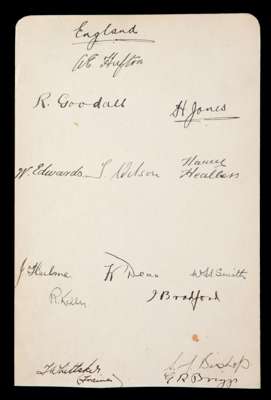 England
A E Hufton
R. Goodall
H Jones
W. Edwards
T Wilson
Healless
J Hulme
W Dean
W H Smith
R. Kelly
J Bradford
T A Whittaker
(Trainer)
J Bishop
G R Briggs